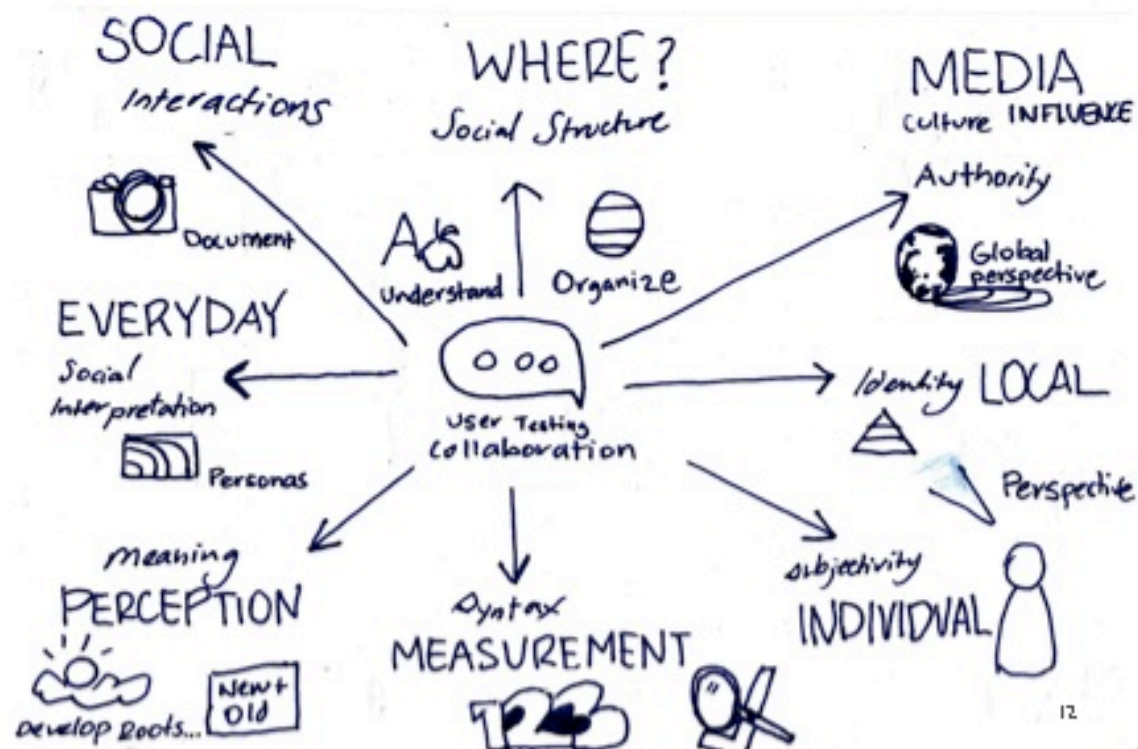 SOCIAL
Interactions
Document
WHERE?
Social Structure
A
Understand
Organize
MEDIA
Culture INFLUENCE
Authority
Global
perspective
EVERYDAY
Social
Interpretation
Personas
User Testing
Collaboration
Identity LOCAL
Perspective
Meaning
PERCEPTION
Develop Roots...
New +
Old
Syntax
MEASUREMENT
Subjectivity
INDIVIDUAL
12